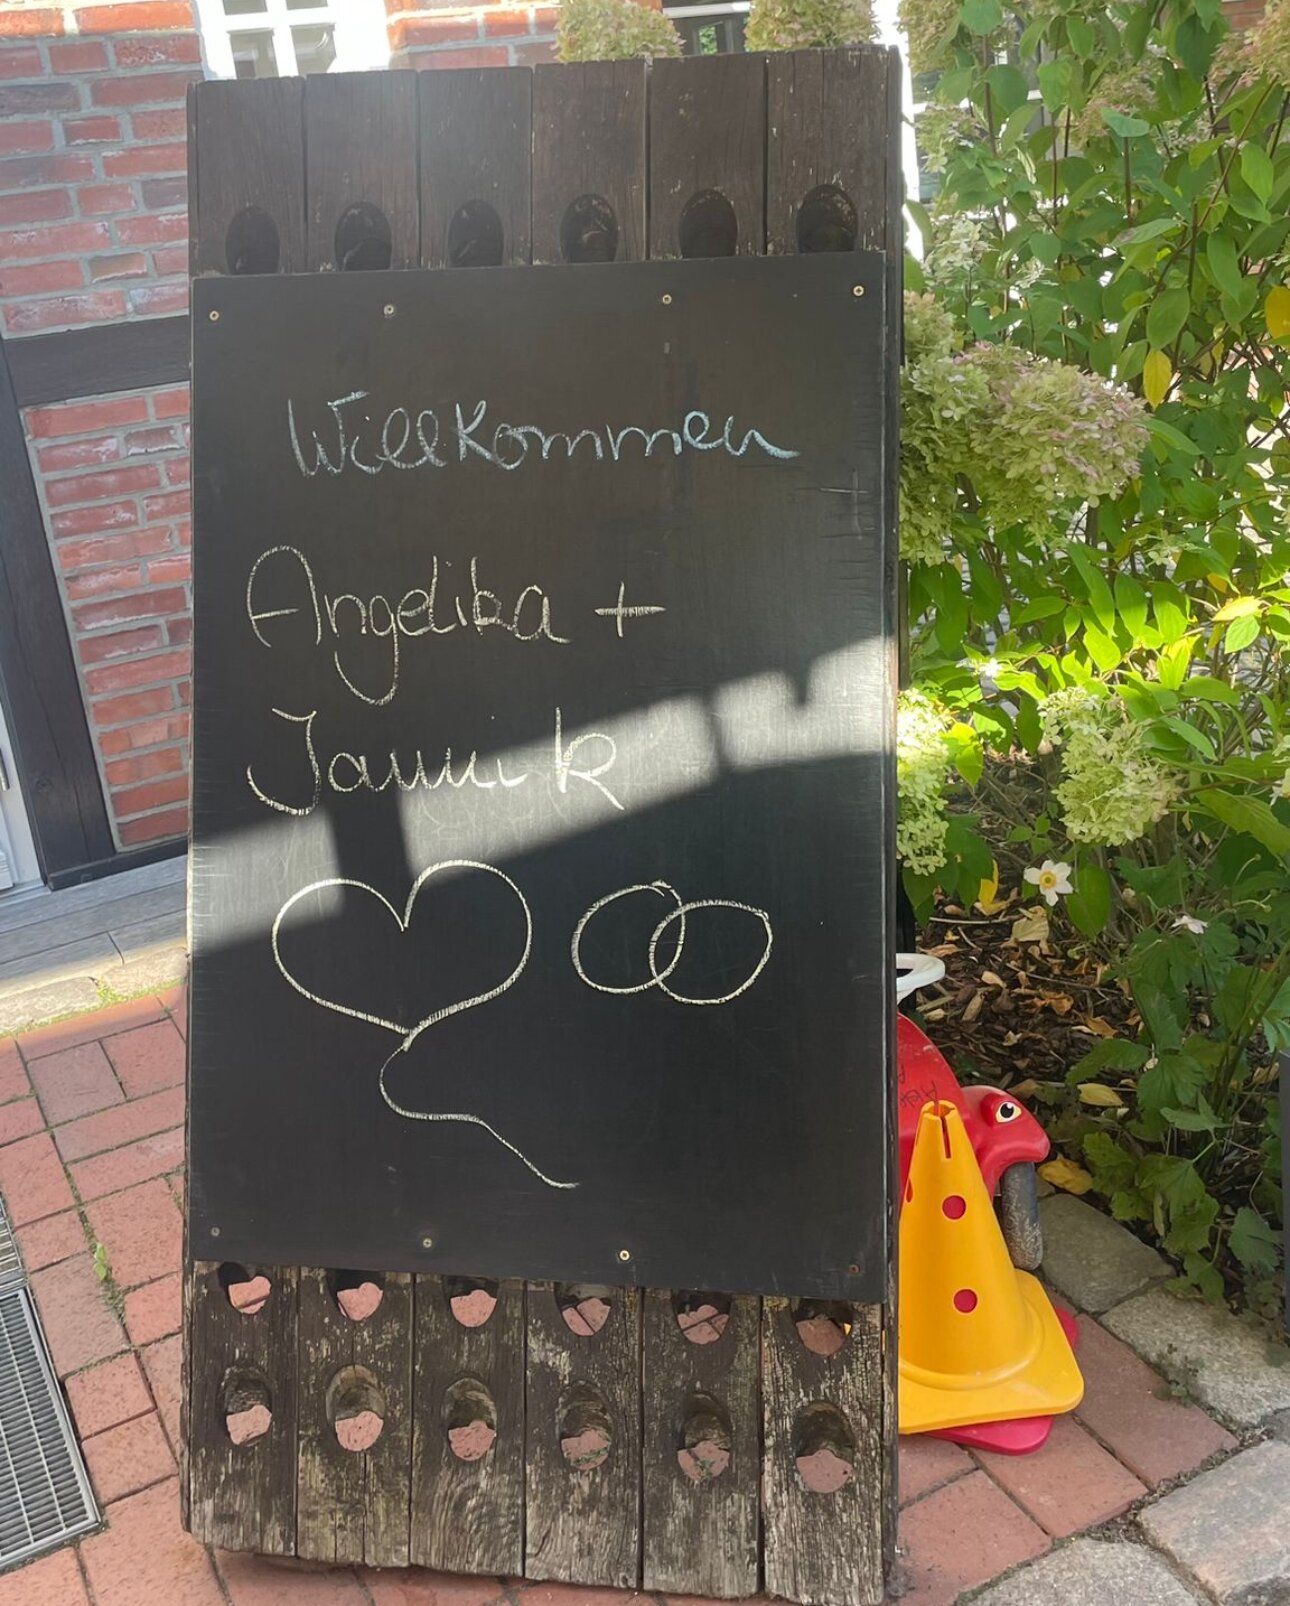 Willkommen
Angelika +
Jannik